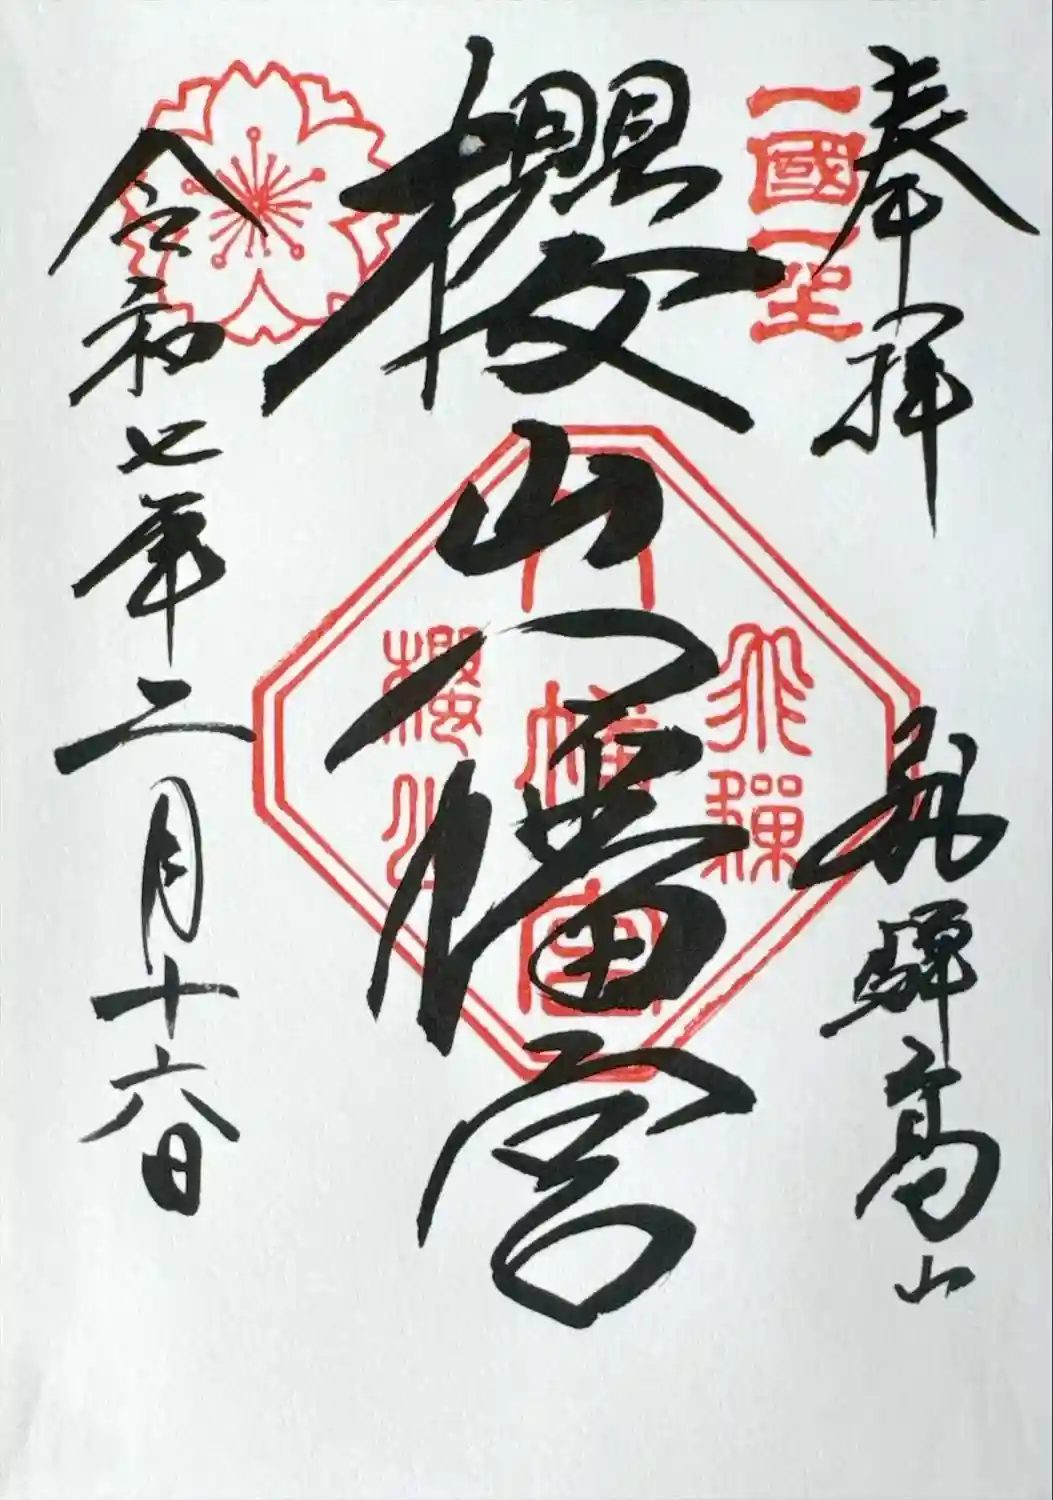 奉拝
飛騨高山
一國一宮
櫻山八幡宮
飛騨
八幡宮
櫻山
令和七年二月十六日